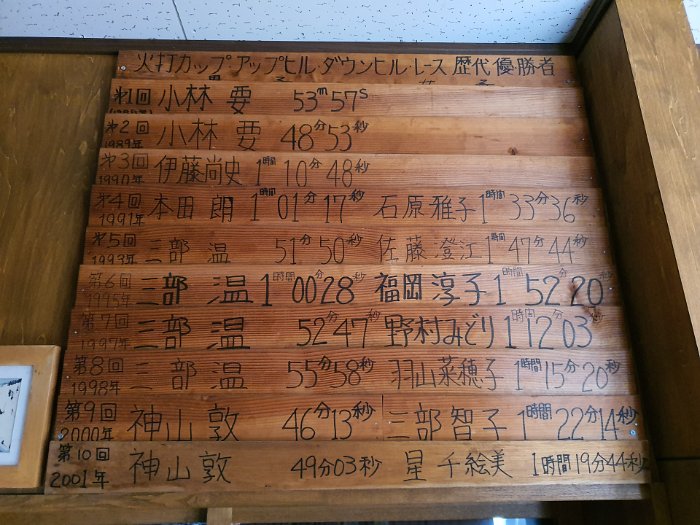 火打カップアップヒルダウンヒルレース歴代優勝者
男子 女子
第1回 小林 要 53m57s
第2回 1989年 小林 要 48分53秒
第3回 1990年 伊藤尚史 1時間10分48秒
第4回 1991年 本田 朗 1時間01分17秒 石原雅子 1時間33分36秒
第5回 1993年 三部 温 51分50秒 佐藤澄江 1時間47分44秒
第6回 1995年 三部 温 1時間00分28秒 福岡淳子 1時間52分20秒
第7回 1997年 三部 温 52分47秒 野村みどり 1時間12分03秒
第8回 1998年 三部 温 55分58秒 羽山菜穂子 1時間15分20秒
第9回 2000年 神山 敦 46分13秒 三部智子 1時間22分14秒
第10回 2001年 神山敦 49分03秒 星 千絵美 1時間19分44秒